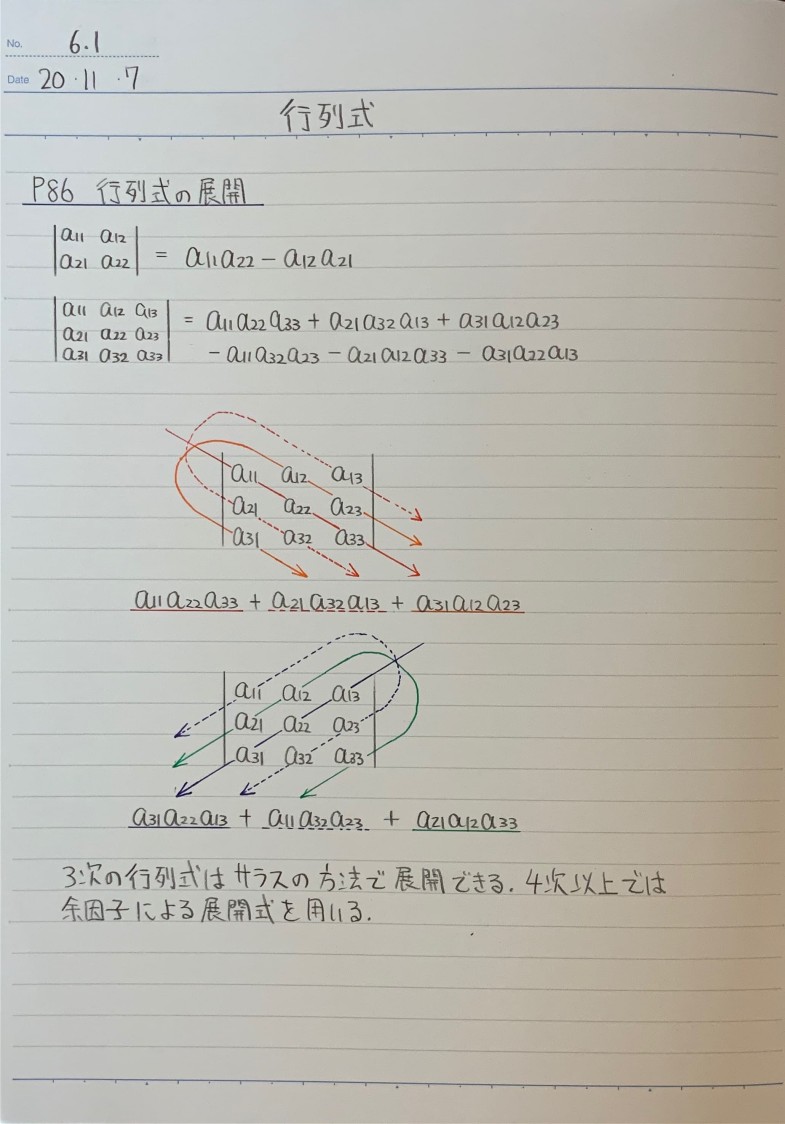 No. 6.1
Date 20・11・7
行列式
P86 行列式の展開
|a11 a12|
|a21 a22| = a11a22 − a12a21
|a11 a12 a13| = a11a22a33 + a21a32a13 + a31a12a23
|a21 a22 a23|
|a31 a32 a33| − a11a32a23 − a21a12a33 − a31a22a13
a11 a12 a13
a21 a22 a23
a31 a32 a33
a11a22a33 + a21a32a13 + a31a12a23
a11 a12 a13
a21 a22 a23
a31 a32 a33
a31a22a13 + a11a32a23 + a21a12a33
3次の行列式はサラスの方法で展開できる. 4次以上では
余因子による展開式を用いる.